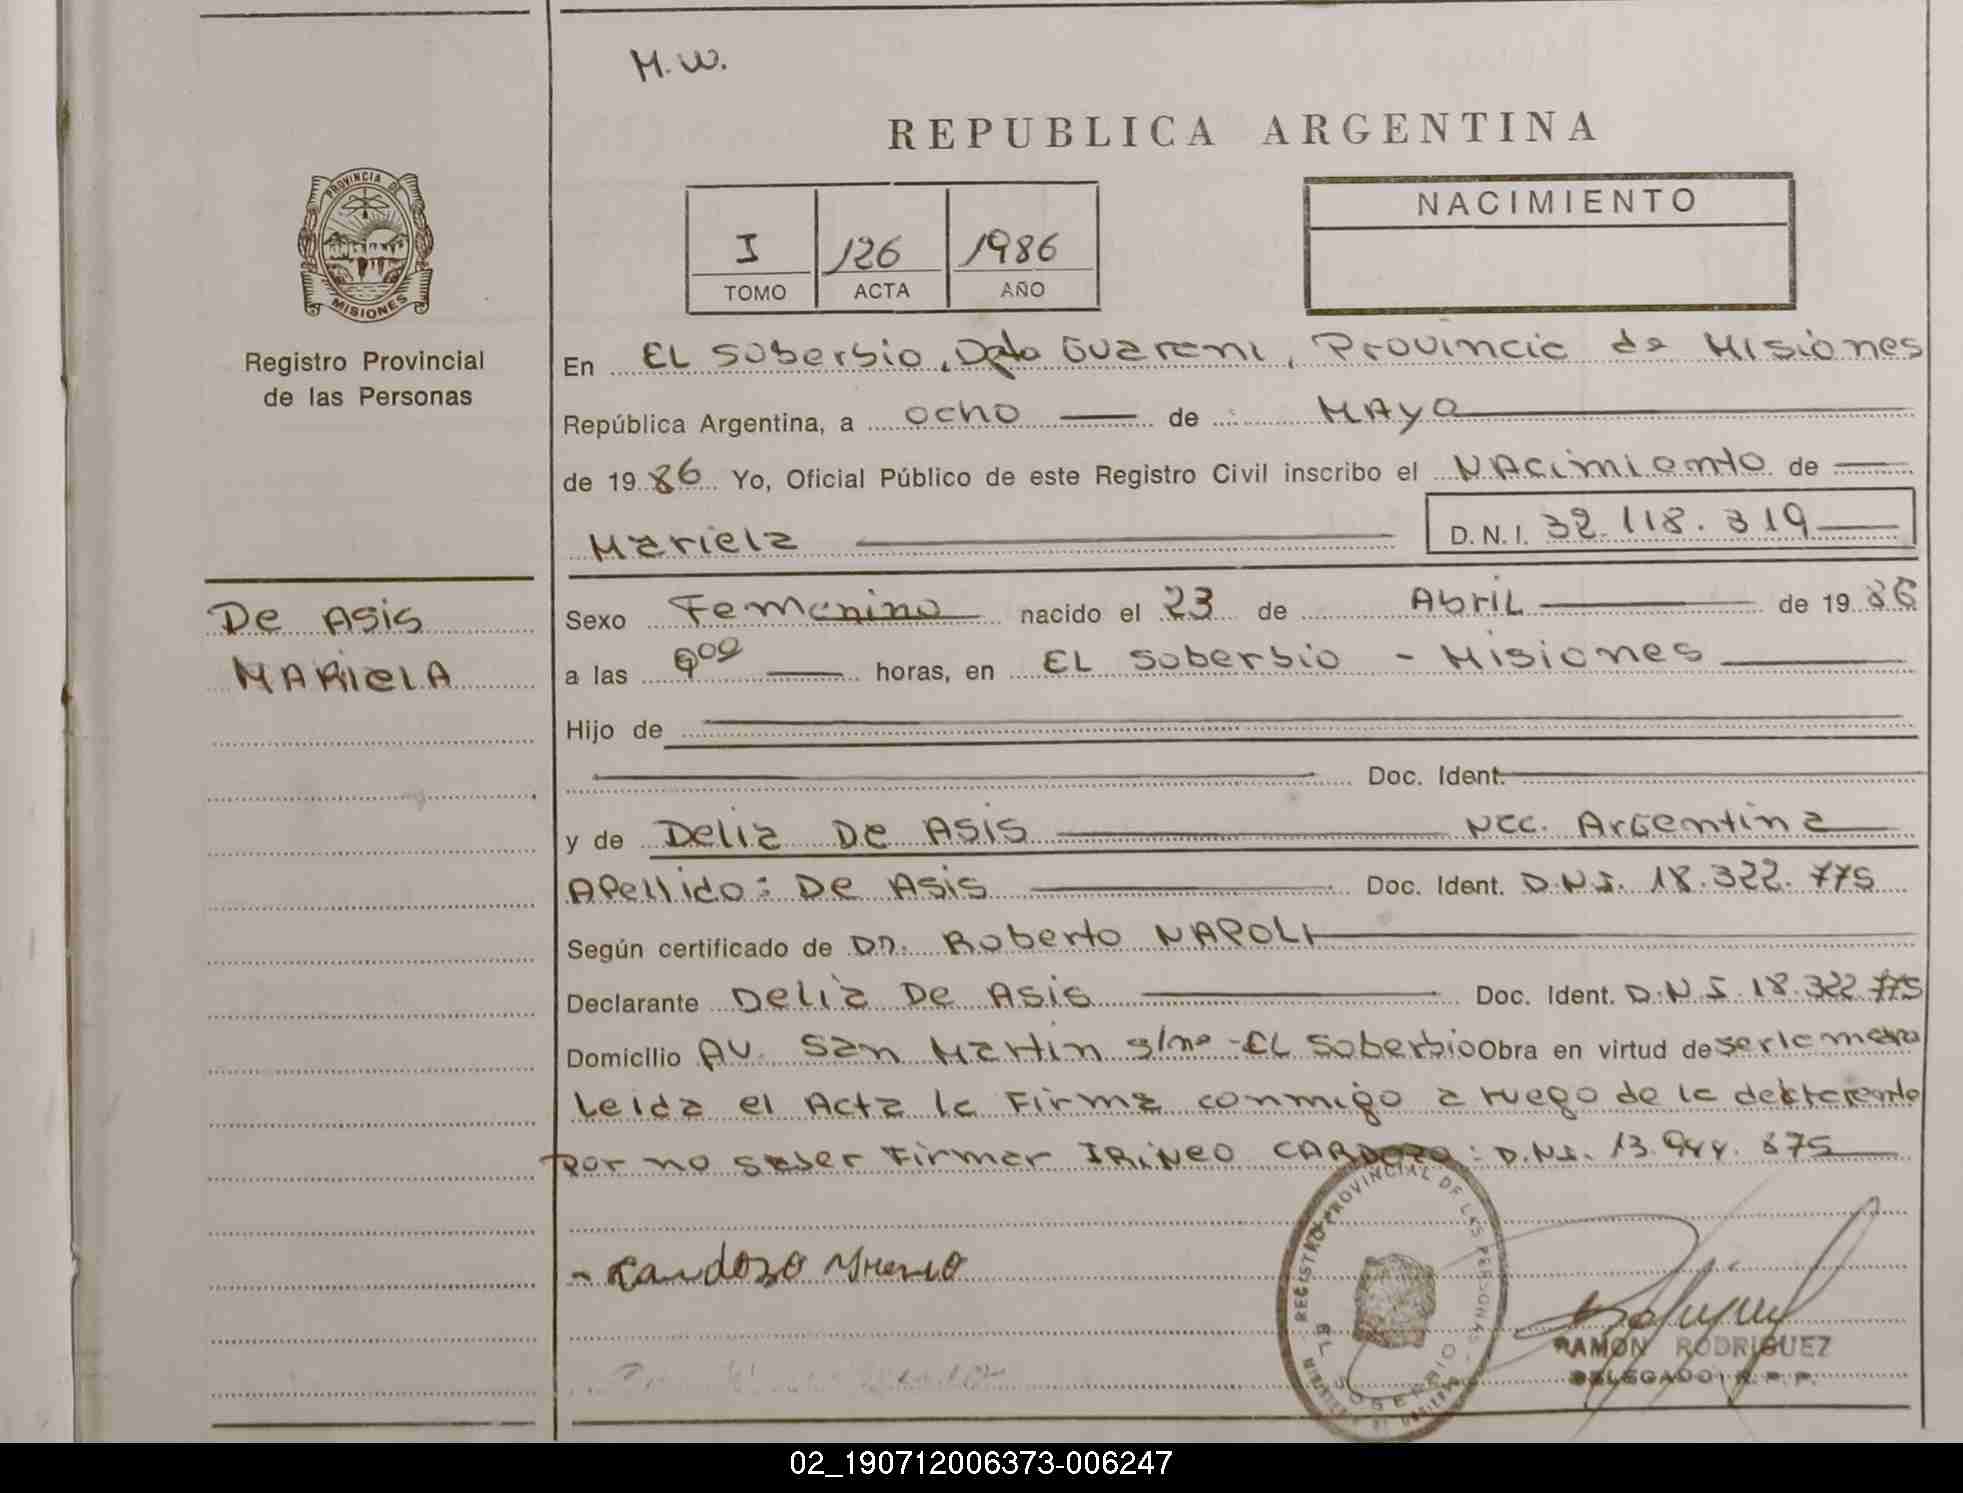 M.W.
REPUBLICA ARGENTINA
PROVINCIA DE
MISIONES
Registro Provincial
de las Personas
I 126 1986
TOMO ACTA AÑO
NACIMIENTO
En EL Soberbio, Dpto Guarani, Provincia de Misiones
República Argentina, a ocho de MAyo
de 1986 Yo, Oficial Público de este Registro Civil inscribo el NAcimiento de
Mariela D.N.I. 32.118.319
De Asis
MARiELA
Sexo Femenino nacido el 23 de Abril de 1986
a las 900 horas, en EL Soberbio - Misiones
Hijo de
Doc. Ident.
y de Delia De Asis Nac. Argentina
Apellido: De Asis Doc. Ident. D.N.I. 18.322.775
Según certificado de Dr. Roberto NAPOLI
Declarante Delia De Asis Doc. Ident. D.N.I. 18.322.775
Domicilio AV. San Martin s/nº - EL Soberbio Obra en virtud de ser la
Leida el Acta la Firma conmigo a ruego de la declarante
por no saber Firmar IRiNeo CARDOZO: D.N.I. 13.944.875
- Cardozo Yrineo
REGISTRO PROVINCIAL DE LAS PERSONAS
EL SOBERBIO
RAMON RODRIGUEZ
DELEGADO R.P.P.
02_190712006373-006247